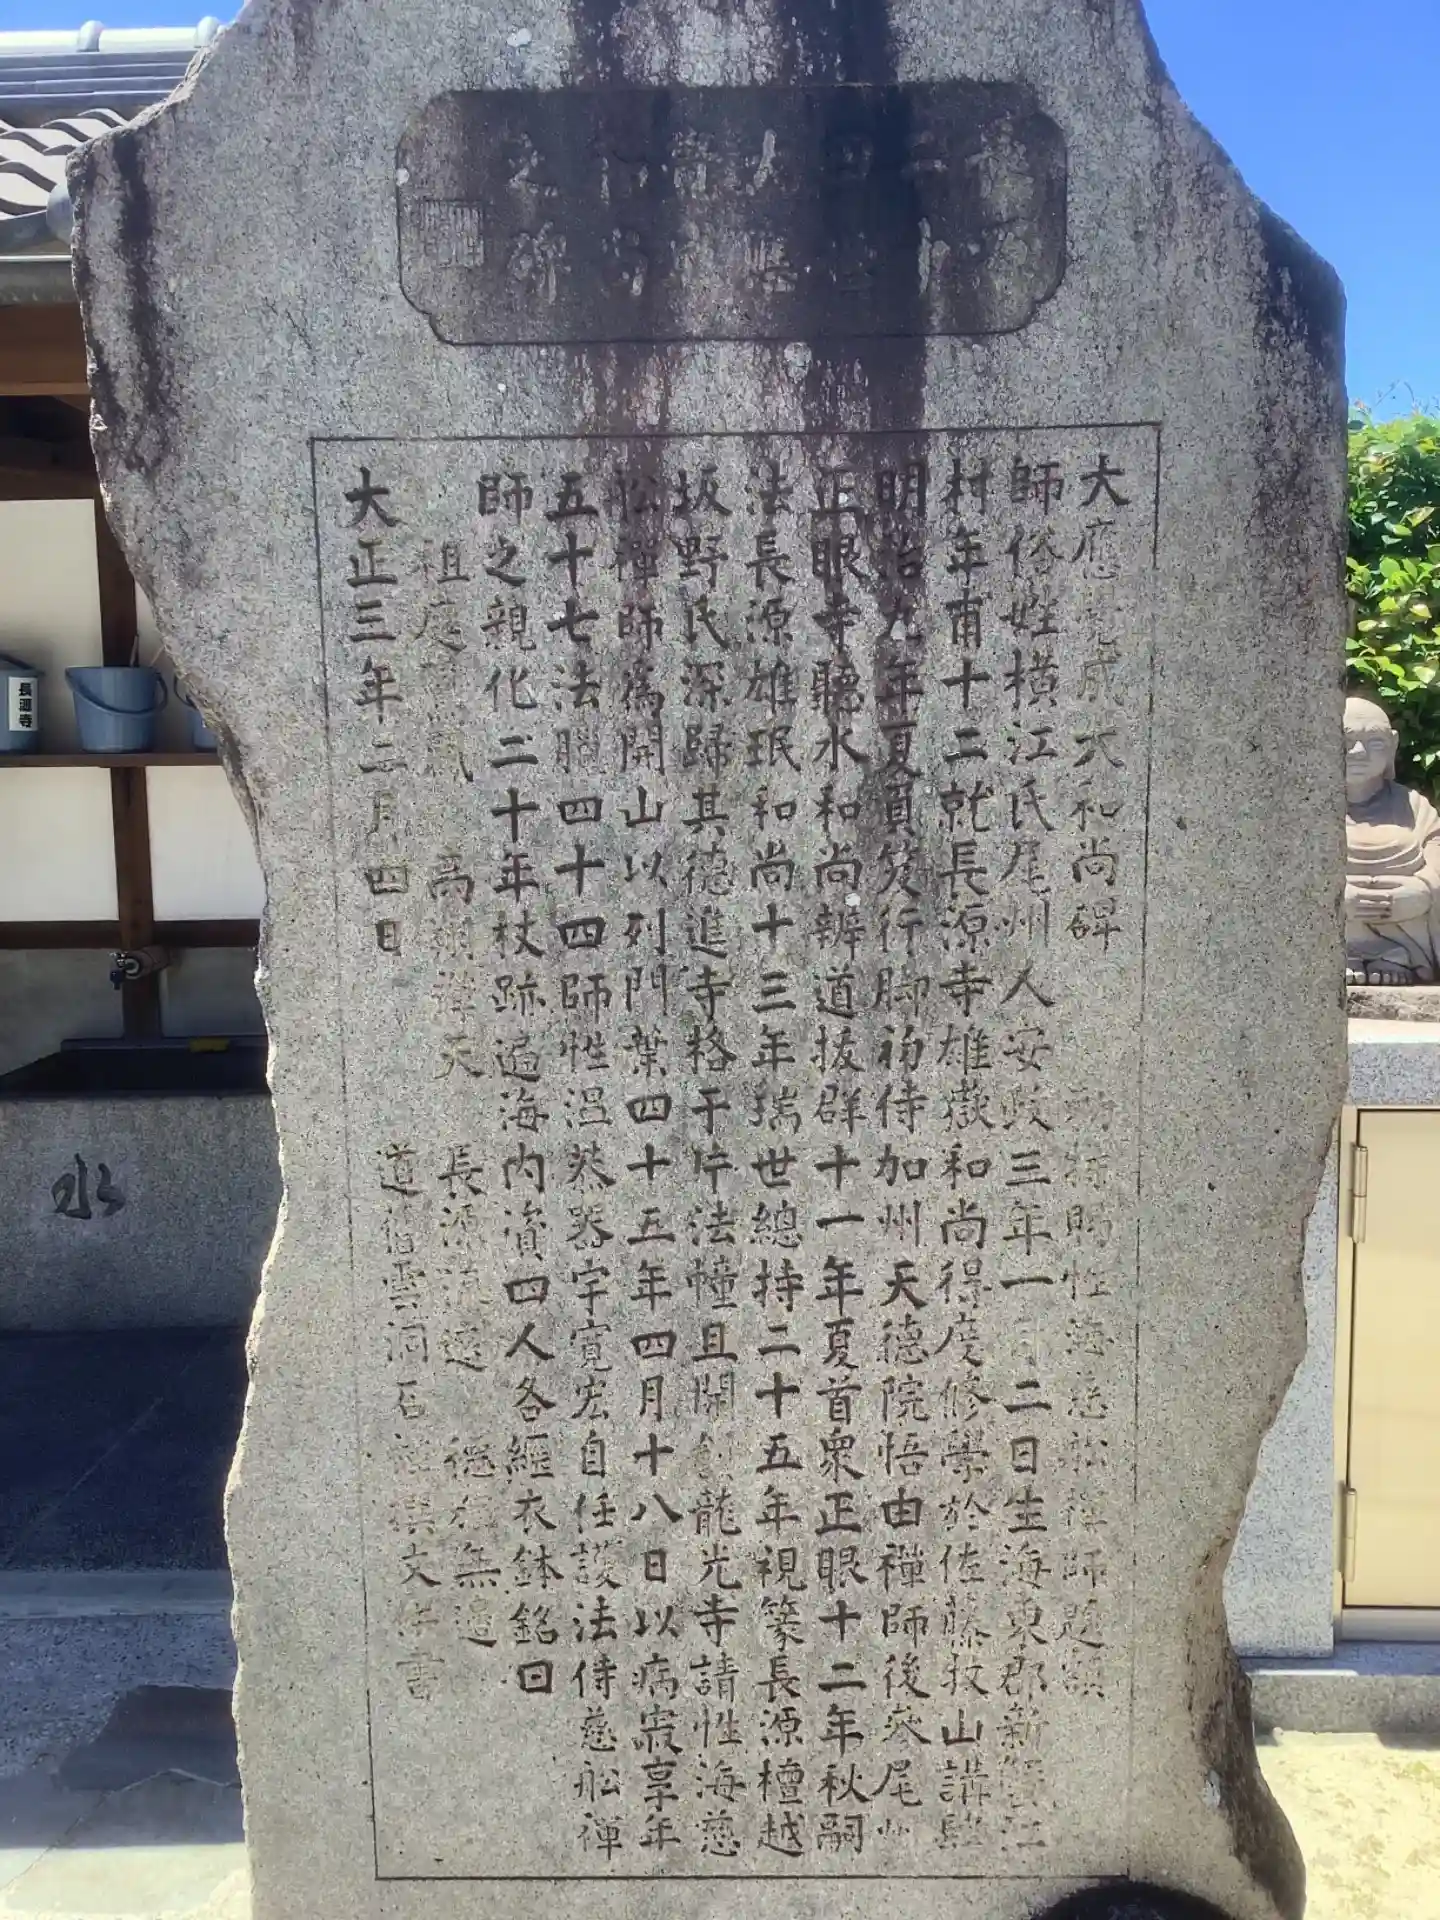 大應覺成大和尚碑
特賜性海慈船禅師題額
師俗姓横江氏尾州人安政三年一月二日生海東郡新蟹江
村年甫十二就長源寺雄嶽和尚得度修學於佐藤牧山講黌
明治九年夏負笈行脚初侍加州天德院悟由禪師後參尾州
正眼寺聽水和尚辨道拔群十一年夏首衆正眼十二年秋嗣
法長源雄珉和尚十三年瑞世總持二十五年視篆長源檀越
坂野氏深歸其德進寺格于片法幢且開創龍光寺請性海慈
舩禪師為開山以列門葉四十五年四月十八日以病寂享年
五十七法臘四十四師性温恭器宇寛宏自任護法侍慈舩禅
師之親化二十年杖跡遍海内資四人各經衣鉢銘曰
祖庭 風 高朗禅天 長源流遠 德 無邊
大正三年二月四日 道 雲洞石 撰文併書
之碑
水
長源寺